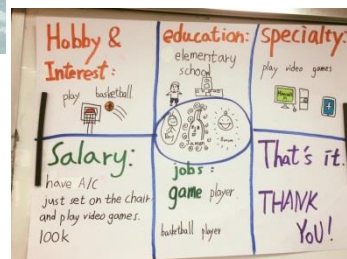 Hobby &
Interest:
play basketball
education:
elementary
school
specialty:
play video games
Salary:
have A/C
just set on the chair
and play video games.
100k
jobs:
game player
basketball player
That's it.
THANK
YOU!